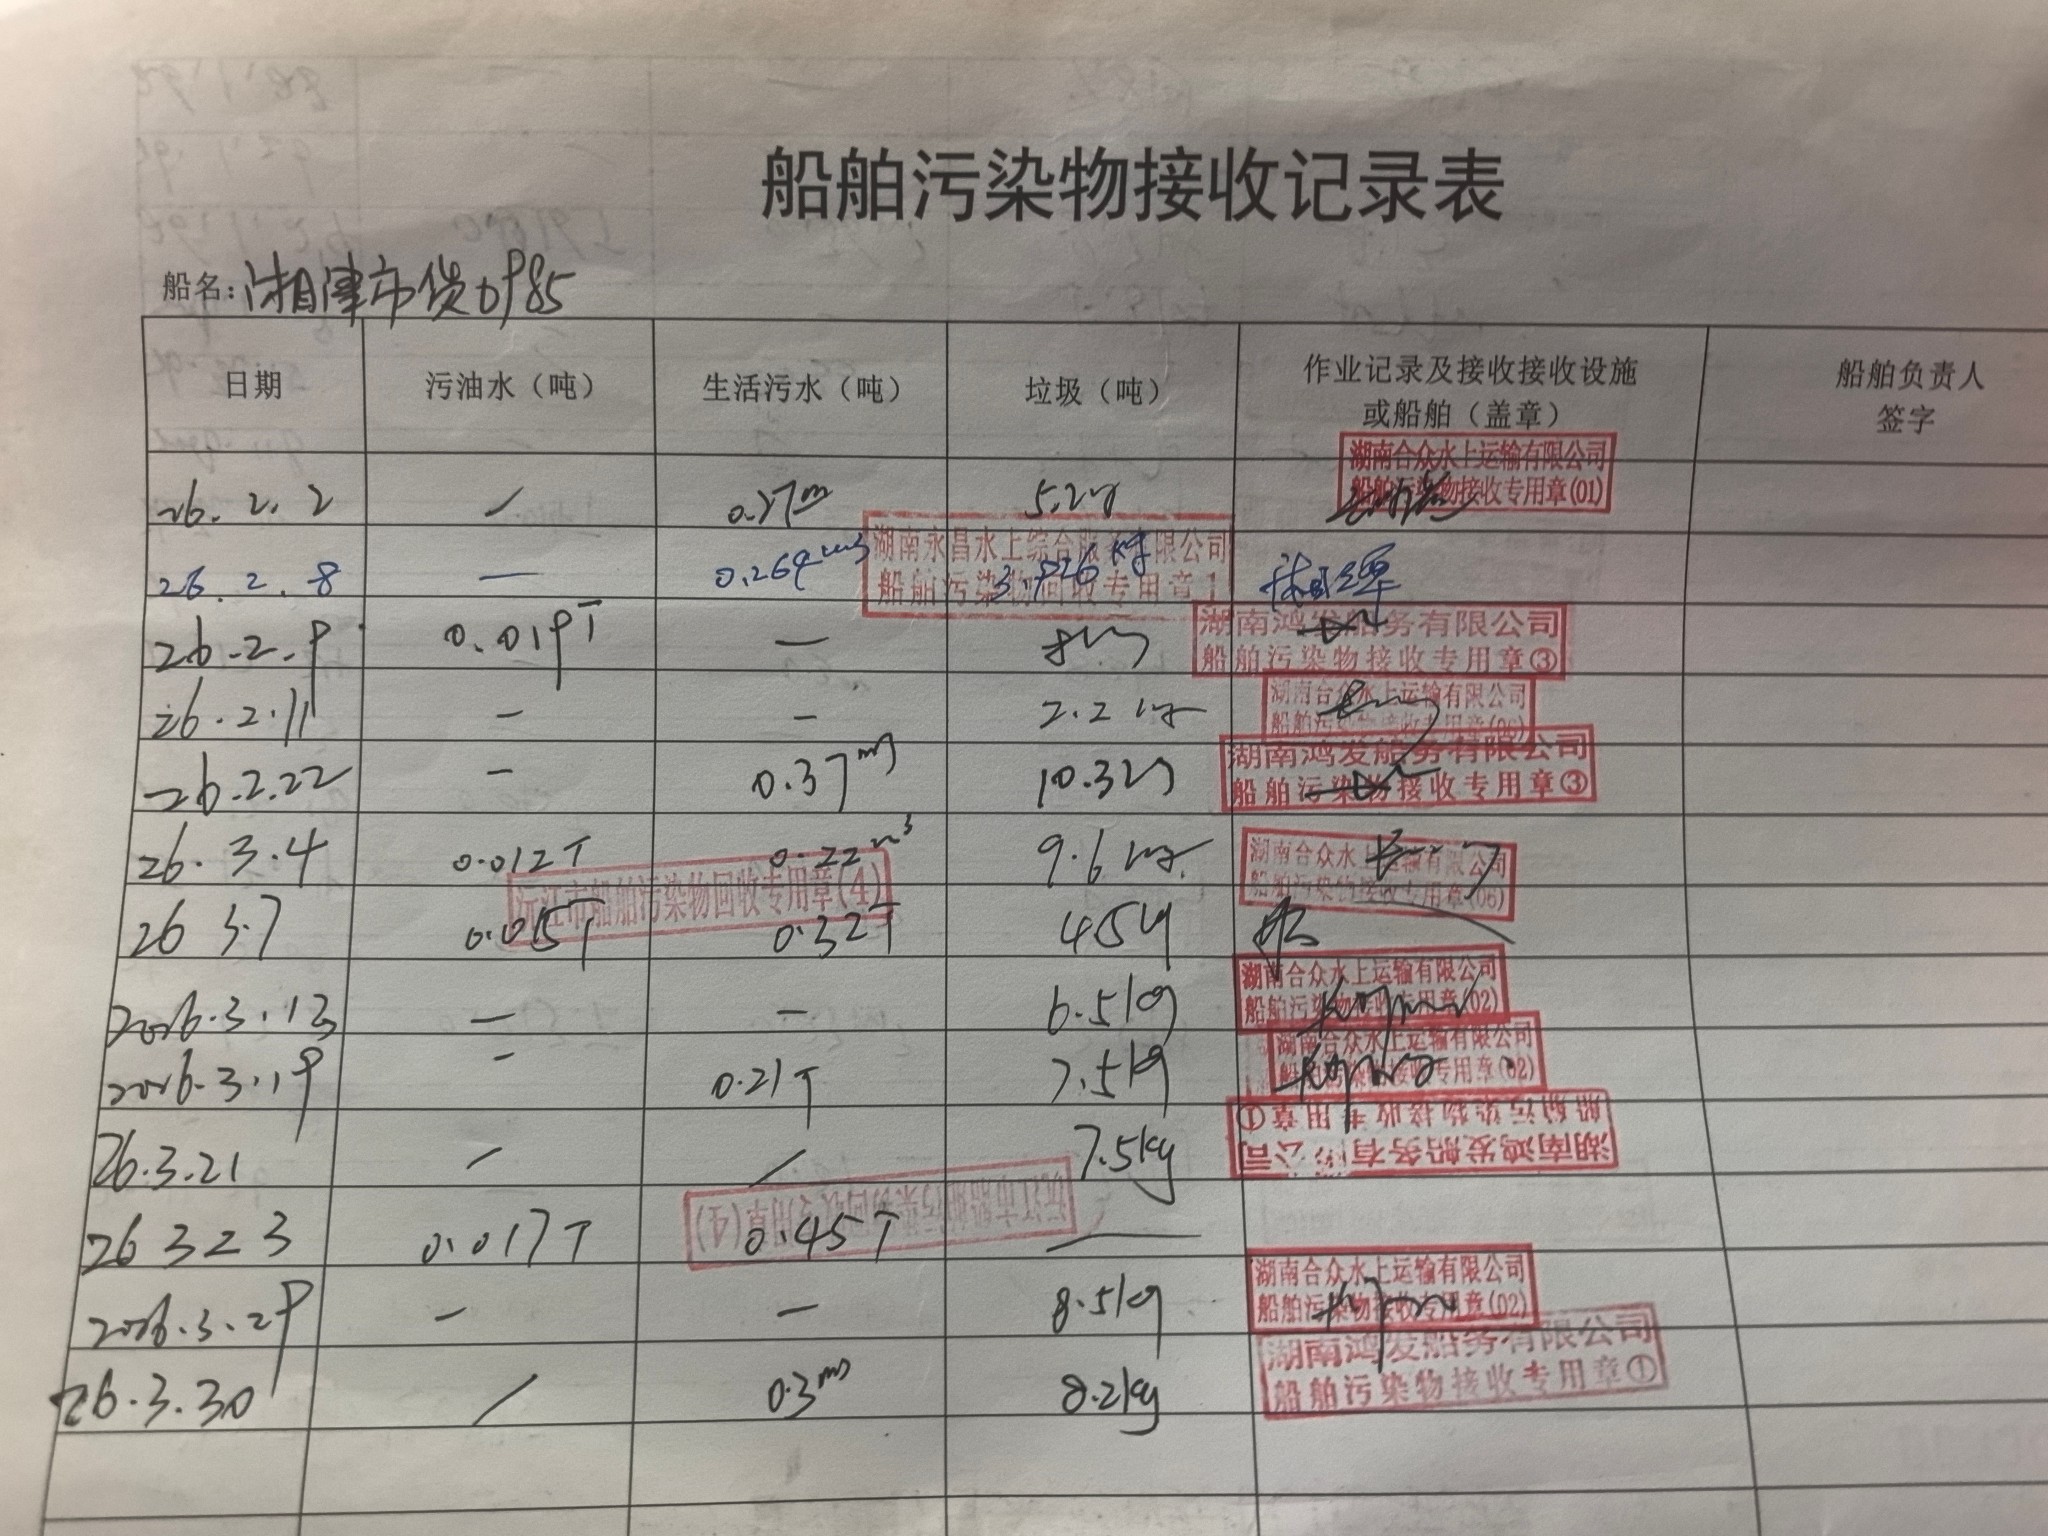 船舶污染物接收记录表
船名:湘津市货0985
日期 污油水（吨） 生活污水（吨） 垃圾（吨） 作业记录及接收接收设施或船舶（盖章） 船舶负责人签字
26.2.2 / 0.27m 5.2kg 湖南合众水上运输有限公司 船舶污染物接收专用章(01)
26.2.8 — 0.264m3 kg 湖南永昌水上综合服务有限公司 船舶污染物回收专用章1
26.2.9 0.019T — 8kg 湖南鸿发船务有限公司 船舶污染物接收专用章③
26.2.11 — — 2.2kg 湖南合众水上运输有限公司 船舶污染物接收专用章(06)
26.2.22 — 0.37m3 10.3kg 湖南鸿发船务有限公司 船舶污染物接收专用章③
26.3.4 0.012T 0.22m3 9.6kg 湖南合众水上运输有限公司 船舶污染物接收专用章(06)
沅江市船舶污染物回收专用章(4)
26 3.7 0.015T 0.32T 4.5kg
2026.3.13 — — 6.5kg 湖南合众水上运输有限公司 船舶污染物接收专用章(02)
2026.3.19 — 0.21T 7.5kg 湖南合众水上运输有限公司 船舶污染物接收专用章(02)
26.3.21 / / 7.5kg 湖南鸿发船务有限公司 船舶污染物接收专用章①
沅江市船舶污染物回收专用章(4)
26 3 23 0.017T 0.45T —
2026.3.29 — — 8.5kg 湖南合众水上运输有限公司 船舶污染物接收专用章(02)
26.3.30 / 0.3m3 8.2kg 湖南鸿发船务有限公司 船舶污染物接收专用章①